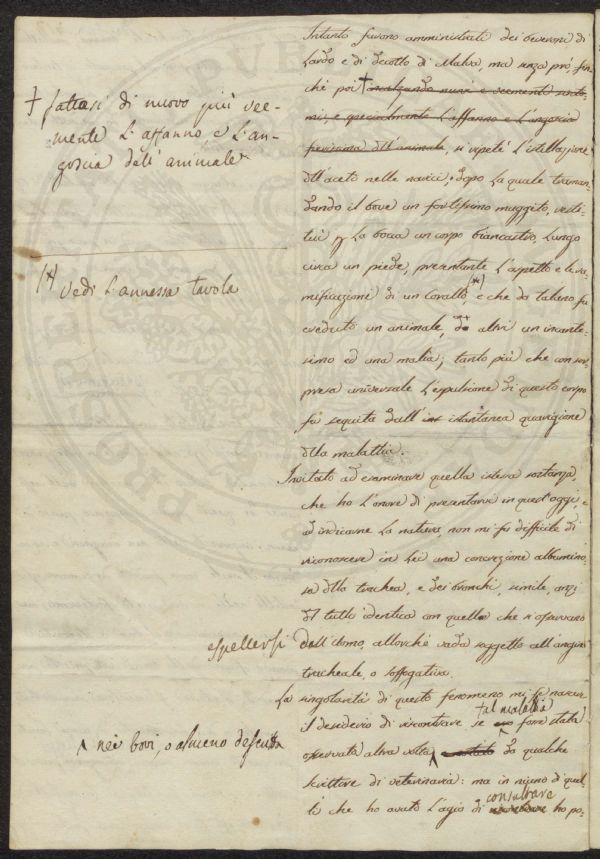 Intanto furono amministrati dei beveroni di
Lardo e di Decotto di Malva, ma senza prò, fin-
chè poi †
† fattasi di nuovo più vee-
mente l'affanno e l'an-
goscia dell'animale
si ripetè l'istillazione
dell'aceto nelle narici, dopo la quale traman-
dando il bove un fortissimo muggito, resti-
tuì p la bocca un corpo biancastro, lungo
circa un piede, presentante l'aspetto e le ra-
mificazioni di un Corallo, (*) e che da taluno fu
(*) Vedi l'annessa tavola
creduto un animale, da altri un incante-
simo ed una malìa; tanto più che con sor-
presa universale l'espulsione di questo corpo
fu seguita dall' istantanea guarigione
della malattia.
Invitato ad esaminare quella istessa sostanza,
che ho l'onore di presentarvi in quest'oggi, e
ad indicarne la natura, non mi fu difficile di
riconoscere in lei una concrezione albumino-
sa della trachea, e dei bronchi, simile, anzi
del tutto identica con quella che si osservano
espellersi dall'Uomo, allorchè vada soggetto all'angina
tracheale, o soffogativa.
La singolarità di questo fenomeno mi fe nascere
il desiderio di riscontrare se tal malattia forse stata
osservata altra volta ^ da qualche
^ nei bovi, o almeno descritta
scrittore di veterinaria: ma in niuno di quel-
li che ho avuto l'agio di consultare ho po-